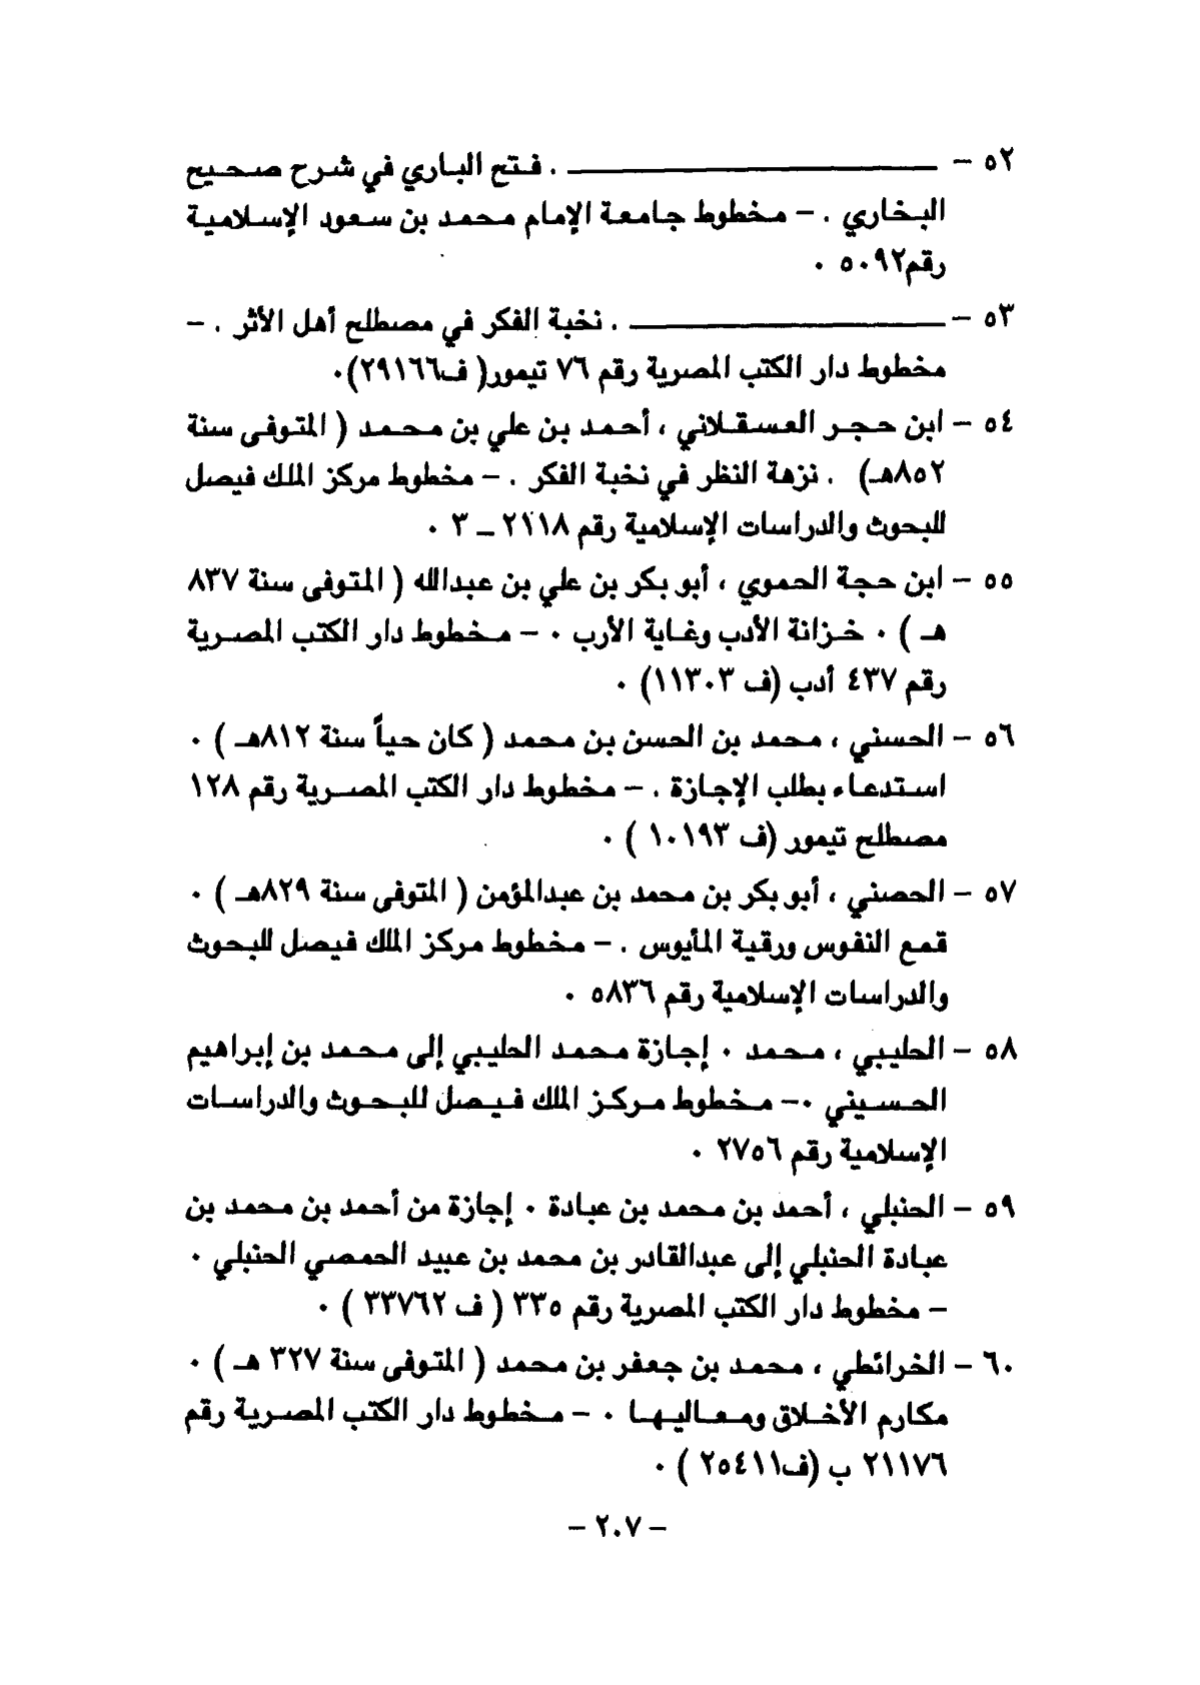 ٥٢ - ــــــــــــــــــــــــ . فـتح البـاري في شـرح صـحـيح
البـخـاري . - مـخطوط جـامعـة الإمـام مـحـمـد بن سـعـود الإسـلامـيـة
رقم٥٠٩٢ ٠
٥٣ - ــــــــــــــــــــــــ . نخبة الفكر في مصطلح أهل الأثر . -
مخطوط دار الكتب المصرية رقم ٧٦ تيمور( ف٢٩١٦٦)٠
٥٤ - ابن حـجـر العـسـقـلاني ، أحـمـد بـن علي بن مـحـمـد ( المتـوفـى سنة
٨٥٢هـ) . نزهة النظر في نخبة الفكر . - مـخطوط مركز الملك فيصل
للبحوث والدراسات الإسلامية رقم ٢١١٨ ــ ٣ ٠
٥٥ - ابن حـجة الحـموي ، أبو بكر بن علي بن عبدالله ( المتوفى سنة ٨٣٧
هـ ) ٠ خـزانة الأدب وغـاية الأرب ٠ - مـخطوط دار الكتب المصـرية
رقم ٤٣٧ أدب (ف ١١٣٠٣) ٠
٥٦ - الحسني ، محمد بن الحسن بن محمد ( كان حياً سنة ٨١٢هـ ) ٠
اسـتدعـاء بطلب الإجـازة . - مخطوط دار الكتب المصـرية رقم ١٢٨
مصطلح تيمور (ف ١٠١٩٣ ) ٠
٥٧ - الحصني ، أبو بكر بن محمد بن عبدالمؤمن ( المتوفى سنة ٨٢٩هـ ) ٠
قمع النفوس ورقية المأيوس . - مـخطوط مركز الملك فيصل للبحوث
والدراسات الإسلامية رقم ٥٨٣٦ ٠
٥٨ - الحليبي ، مـحمد ٠ إجازة محمد الحليبي إلى محمد بن إبراهيم
الحـسـيني ٠- مـخطوط مـركـز الملك فـيـصل للبـحـوث والدراسـات
الإسلامية رقم ٢٧٥٦ ٠
٥٩ - الحنبلي ، أحمد بن محمد بن عبادة ٠ إجازة من أحمد بن محمد بن
عبادة الحنبلي إلى عبدالقادر بن محمد بن عبيد الحمصي الحنبلي ٠
- مخطوط دار الكتب المصرية رقم ٣٣٥ ( ف ٣٣٧٦٢ ) ٠
٦٠ - الخرائطي ، محمد بن جعفر بن محمد ( المتوفى سنة ٣٢٧ هـ ) ٠
مكارم الأخـلاق ومـعـاليـهـا ٠ - مـخطوط دار الكتب المصـرية رقم
٢١١٧٦ ب (ف٢٥٤١١ ) ٠
- ٢٠٧ -